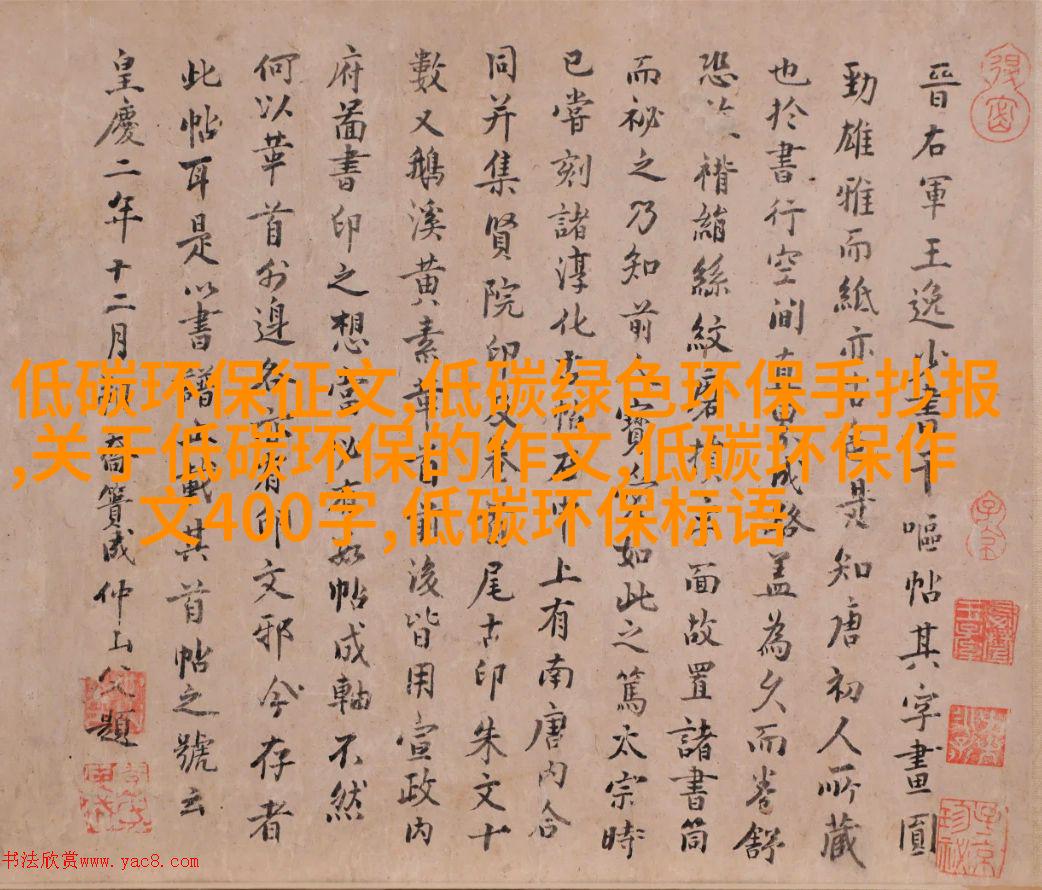 晉右軍王逸少書千嘔帖其字畫圓
勁雄雅而紙亦色是知唐初人所藏
也於書行空澗直界成路盖為久而卷舒
恐褙縮絲紋磨損面故置諸書筒
而祕之乃知前人寶如此之篤太宗時
已嘗刻諸淳化帖上有南唐內合
同并集賢院印及尾古印朱文十
數又鵝溪黃素首前後皆用宣政內
府啚書印之想當必有帖成軸不然
何以莘首外邊各有印文邪今存者
此帖耳是以書譜載其首帖之號云
皇慶二年十二月喬簣成仲山父題
低碳环保征文,低碳绿色环保手抄报
,关于低碳环保的作文,低碳环保作
文400字,低碳环保标语
书法欣赏www.yac8.com